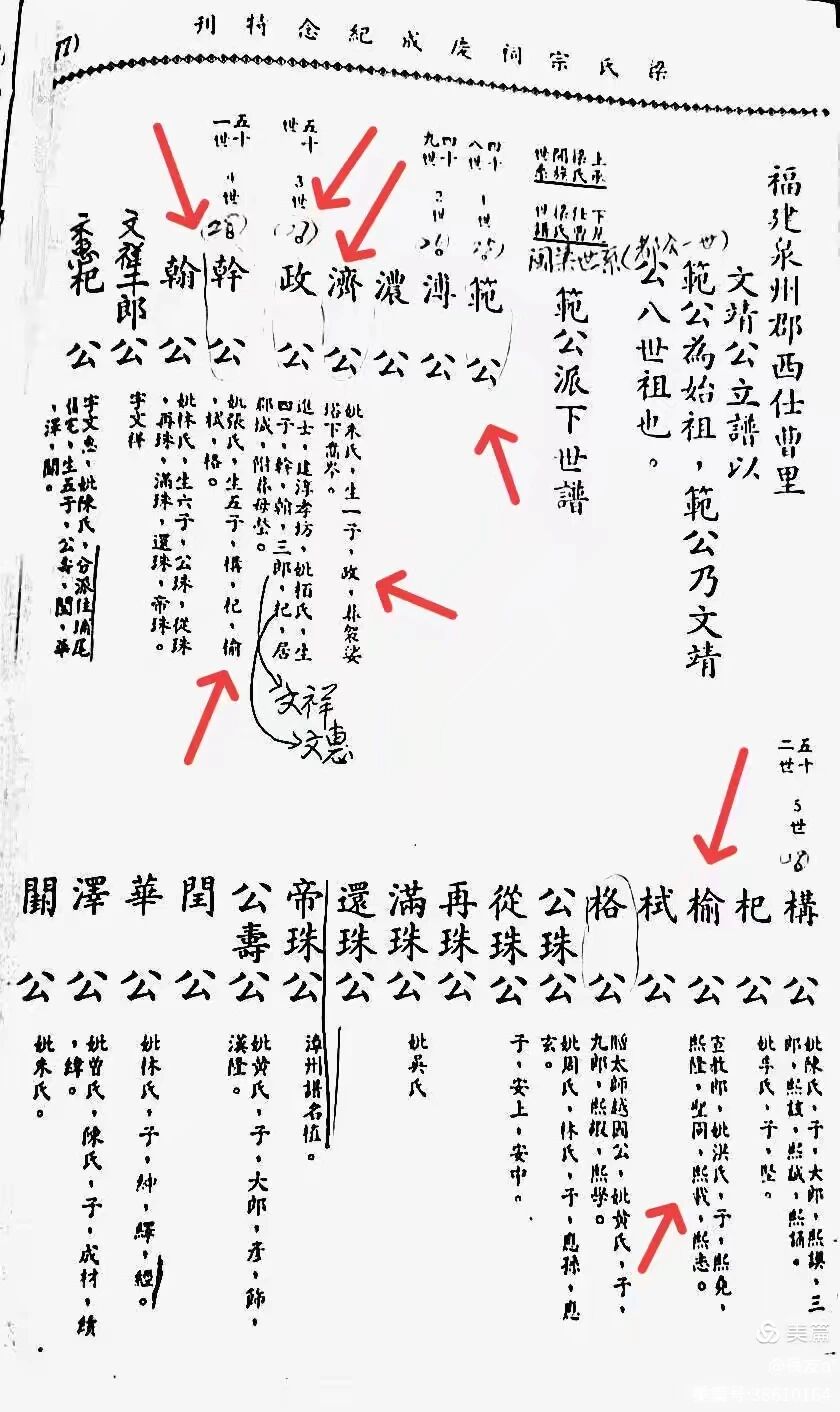 梁氏宗祠慶成紀念特刊
福建泉州郡西仕曹里
文靖公立譜以
範公為始祖，範公乃文靖
公八世祖也。
閩梁世系(都公一世)
範公派下世譜
四十八世 1世
範公
四十九世 2世 (26)
溥公
濃公
濟公 妣朱氏，生一子，政，葬袈娑塔下崙岑。
五十世 3世
政公 進士，建淳孝坊，妣栢氏，生四子，幹，翰，三郎，杞，居郡城，附葬母塋。
文祥
文惠
五十一世 4世 (28)
幹公 妣張氏，生五子，構，杞，榆，栻，格。
翰公 妣林氏，生六子，公珠，從珠，再珠，滿珠，還珠，帝珠。
文祥三郎公 字文祥
文惠杞公 字文惠，妣陳氏，分派住埔尾舊宅，生五子，公壽，閏，華，澤，關。
五十二世 5世
構公 妣陳氏，子，大郎，熙謨，三郎，熙誼，熙誠，熙誦。
杞公 妣李氏，子，堅。
榆公 宣教郎，妣洪氏，子，熙堯，熙隆，堅同，熙載，熙志。
栻公
格公 贈太師越國公，妣黃氏，子，九郎，熙煆，熙學。
公珠公 妣周氏，林氏，子，應孫，應玄。
從珠公 子，安上，安中。
再珠公
滿珠公 妣吳氏
還珠公
帝珠公 漳州譜名值。
公壽公 妣黃氏，子，大郎，彥，飾，漢隆。
閏公
華公 妣林氏，子，紳，繹，經。
澤公 妣曾氏，陳氏，子，成材，績，緯。
關公 妣朱氏。
美篇